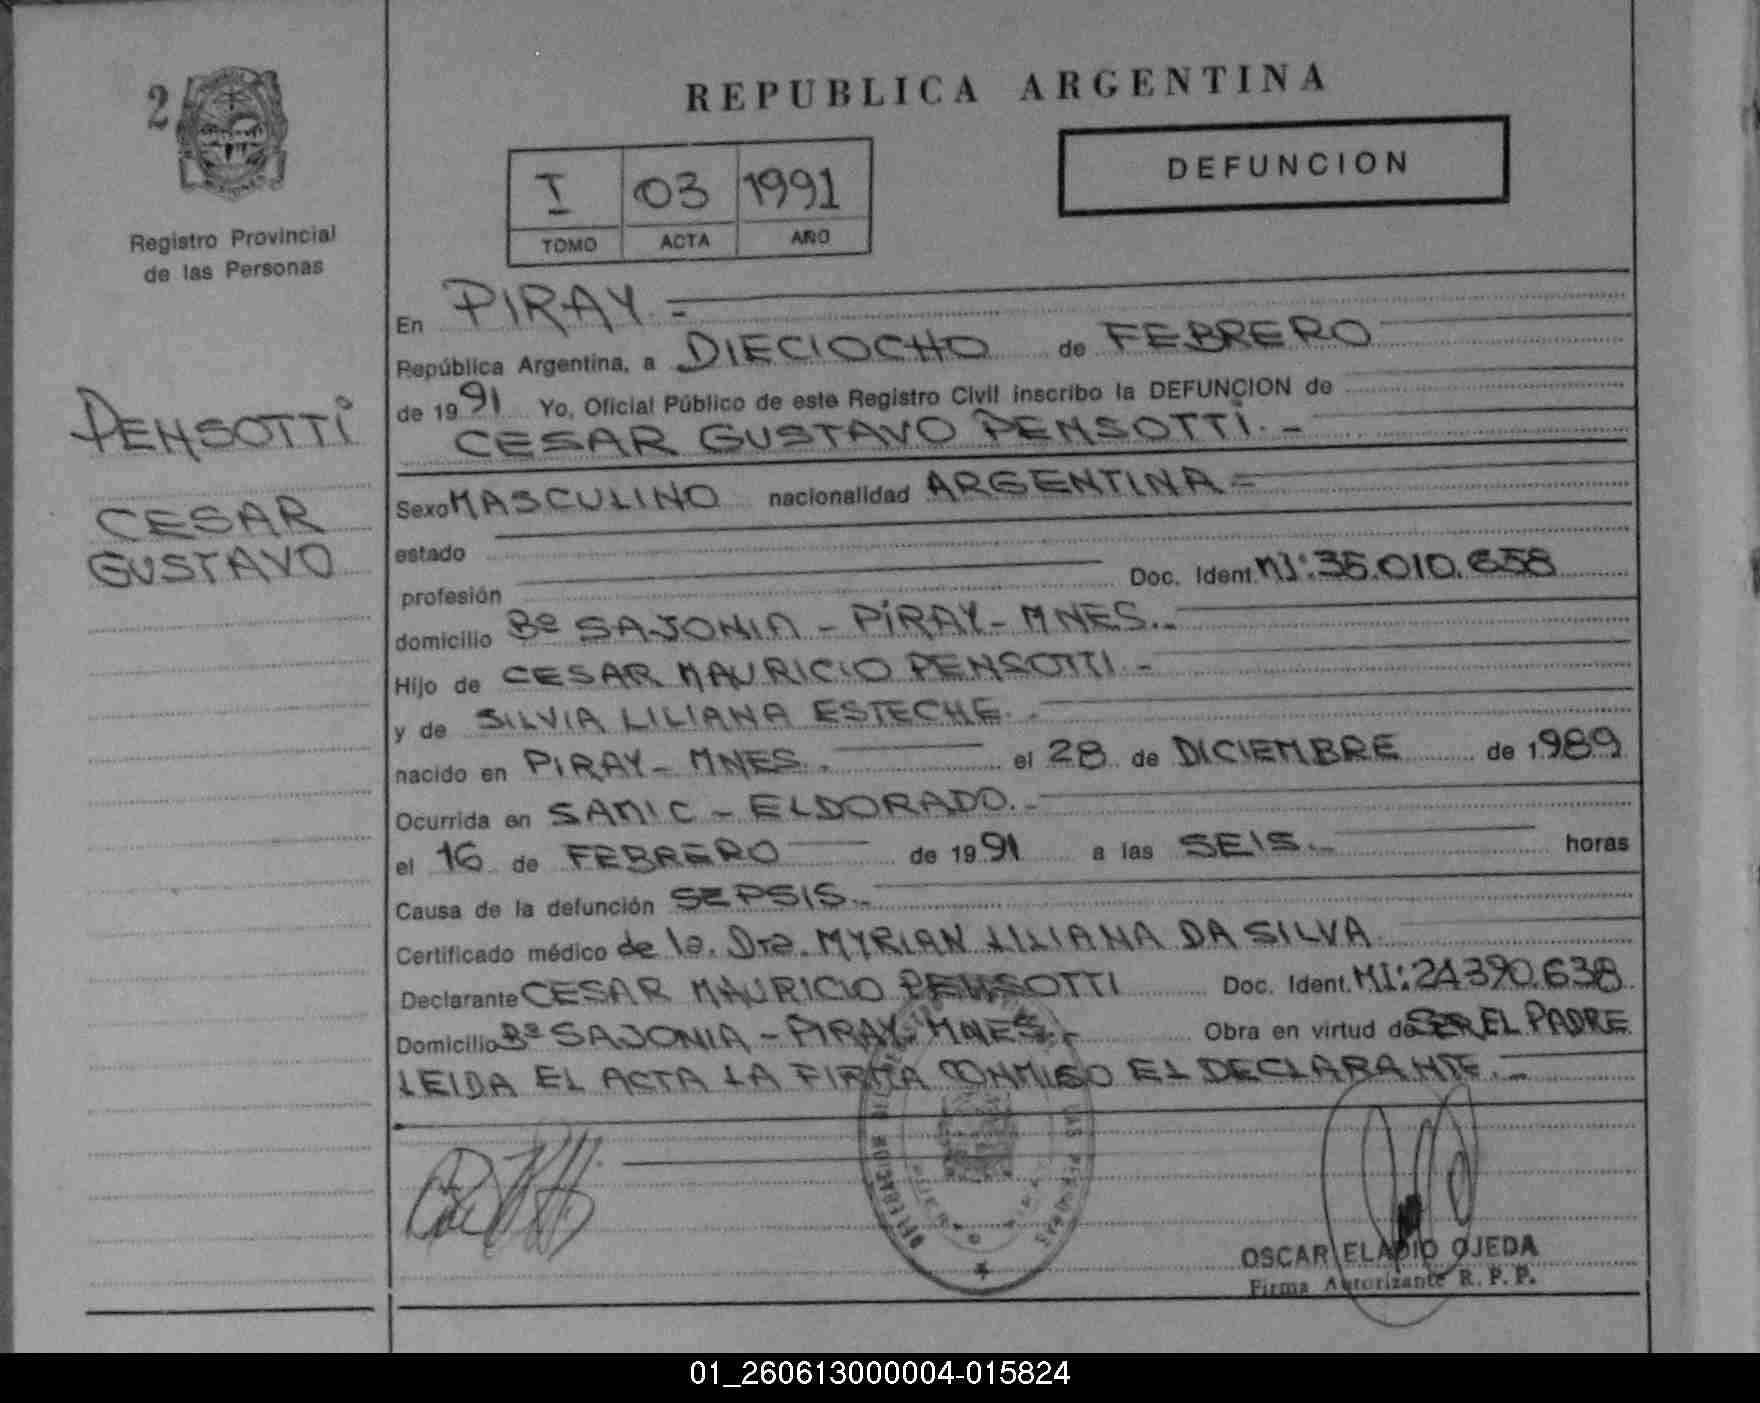 2
Registro Provincial
de las Personas
PENSOTTI
CESAR
GUSTAVO
REPUBLICA ARGENTINA
I 03 1991
TOMO ACTA AÑO
DEFUNCION
En PIRAY.-
República Argentina, a DIECIOCHO de FEBRERO
de 1991 Yo, Oficial Público de este Registro Civil inscribo la DEFUNCION de
CESAR GUSTAVO PENSOTTI.-
Sexo MASCULINO nacionalidad ARGENTINA-
estado
profesión Doc. Ident. MI: 35.010.658
domicilio Bº SAJONIA - PIRAY - MNES.-
Hijo de CESAR MAURICIO PENSOTTI.-
y de SILVIA LILIANA ESTECHE.-
nacido en PIRAY - MNES.- el 28 de DICIEMBRE de 1989
Ocurrida en SAMIC - ELDORADO.-
el 16 de FEBRERO de 1991 a las SEIS.- horas
Causa de la defunción SEPSIS.-
Certificado médico de la. Dra. MYRIAN LILIANA DA SILVA
Declarante CESAR MAURICIO PENSOTTI Doc. Ident. MI: 24.390.638
Domicilio Bº SAJONIA - PIRAY MNES.- Obra en virtud de SER EL PADRE
LEIDA EL ACTA LA FIRMA CONMIGO EL DECLARANTE.-
LAS PERSONAS
OSCAR ELADIO OJEDA
Firma Autorizante R. P. P.
01_260613000004-015824